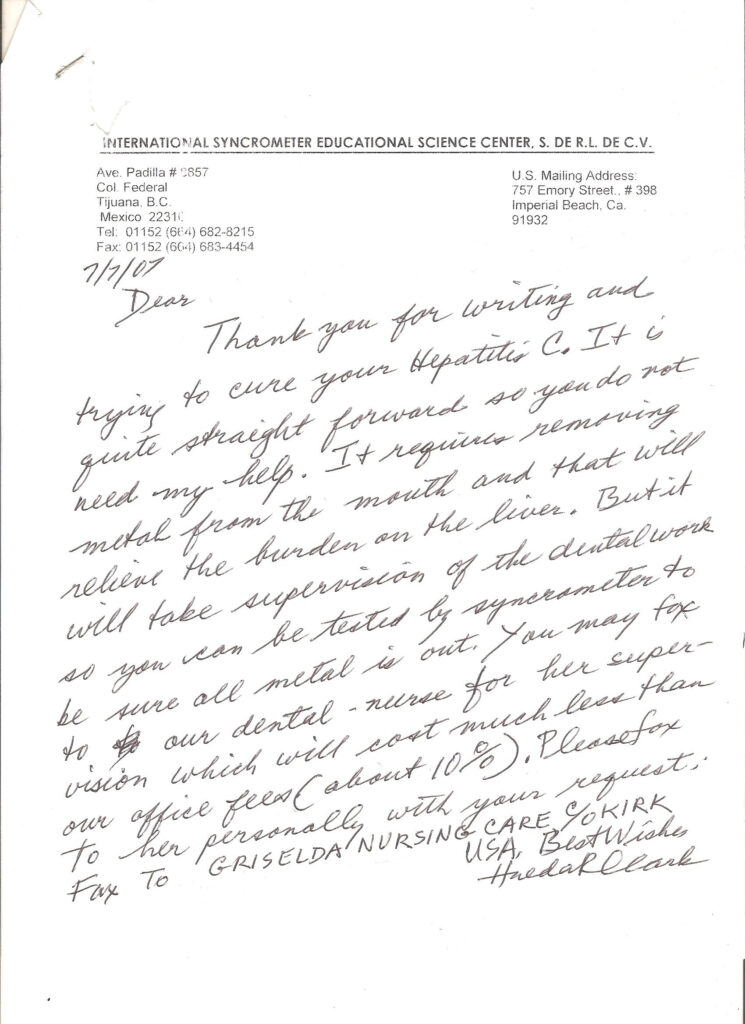 INTERNATIONAL SYNCROMETER EDUCATIONAL SCIENCE CENTER, S. DE R.L. DE C.V.
Ave. Padilla # 9857
Col. Federal
Tijuana, B.C.
Mexico 22310
Tel: 01152 (664) 682-8215
Fax: 01152 (664) 683-4454
U.S. Mailing Address:
757 Emory Street., # 398
Imperial Beach, Ca.
91932
7/7/07
Dear
Thank you for writing and
trying to cure your Hepatitis C. It is
quite straight forward so you do not
need my help. It requires removing
metal from the mouth and that will
relieve the burden on the liver. But it
will take supervision of the dental work
so you can be tested by syncrometer to
be sure all metal is out. You may fax
to our dental-nurse for her super-
vision which will cost much less than
our office fees (about 10%). Please fax
to her personally with your request.
Fax To GRISELDA NURSING CARE C/O KIRK
USA. Best Wishes
Hulda R Clark